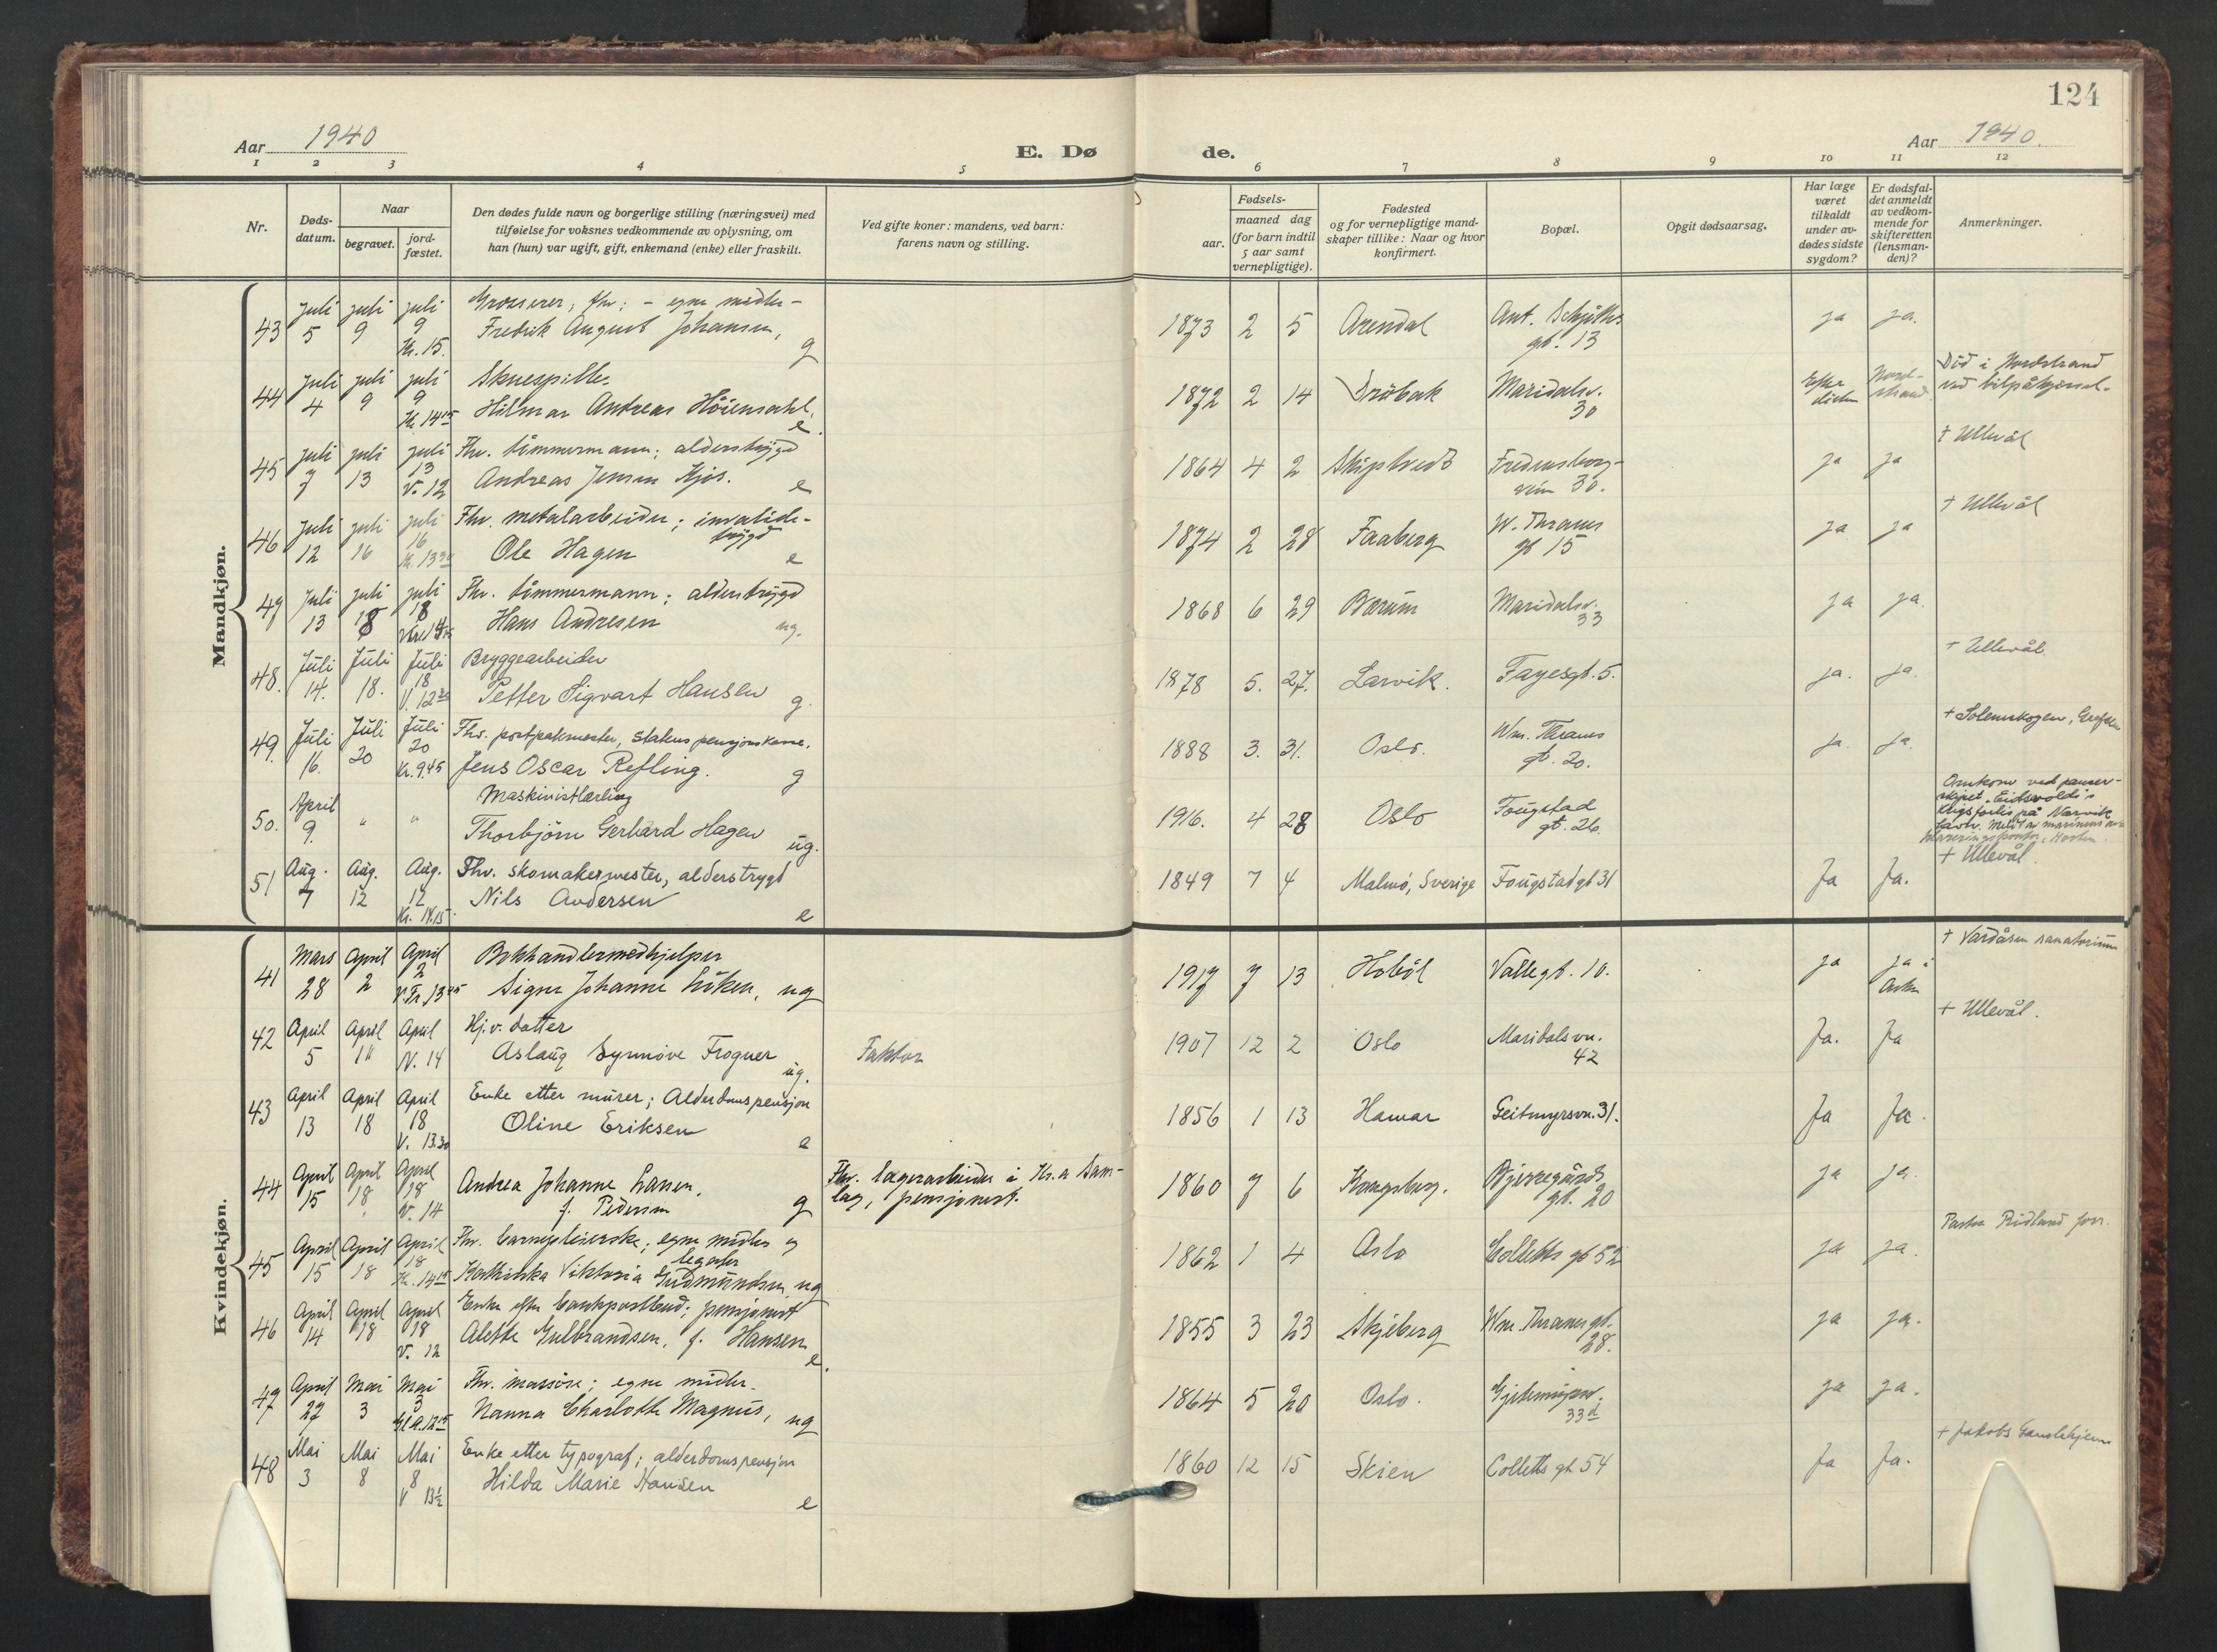 124
Aar 1940
E. Dø
de.
Aar 1940.
1 2 3 4 5 6 7 8 9 10 11 12
Nr.
Døds-
datum.
Naar
begravet.
jord-
fæstet.
Den dødes fulde navn og borgerlige stilling (næringsvei) med
tilføielse for voksnes vedkommende av oplysning, om
han (hun) var ugift, gift, enkemand (enke) eller fraskilt.
Ved gifte koner: mandens, ved barn:
farens navn og stilling.
Fødsels-
aar.
maaned dag
(for barn indtil
5 aar samt
vernepligtige).
Fødested
og for vernepligtige mand-
skaper tillike: Naar og hvor
konfirmert.
Bopæl.
Opgit dødsaarsag.
Har læge
været
tilkaldt
under av-
dødes sidste
sygdom?
Er dødsfal-
det anmeldt
av vedkom-
mende for
skifteretten
(lensman-
den)?
Anmerkninger.
Mandkjøn.
43 Juli 5 juli 9 juli 9 Kr. 15.
Grosserer, fhv; - egne midler -
Fredrik August Johansen, g
1873 2 5 Arendal Ant. Schjøths gt. 13 ja ja.
44 Juli 4 juli 9 juli 9 Kr. 14 15
Skuespiller
Hilmar Andreas Höiensahl, e.
1872 2 14 Dröbak Maridalsv. 30 Efter döden Nord-strand
Död i Nordstrand
ved bilpåkjørsel.
45 juli 7 juli 13 juli 13 V. 12
Fhv. tömmermann; alderstrygd
Andreas Jensen Kjös. e
1864 4 2 Skiptvedt Fredensborg-veien 30. ja ja
† Ullevål
46 Juli 12 juli 16 juli 16 Kr. 13 30
Fhv. metalarbeider; invalide-
trygd
Ole Hagen e
1874 2 28 Faaberg W. Thranes gt 15 ja ja
† Ullevål
47 Juli 13 juli 18 juli 18
Fhv. tömmermann; alderstrygd
Hans Andresen ug.
1868 6 29 Bærum Maridalsv. 33 ja ja.
48. Juli 14. Juli 18. Juli 18 V. 12 30
Bryggearbeider
Petter Sigvart Hansen g.
1878 5. 27. Larvik. Fayesgt. 5. ja. ja.
† Ullevål.
49. Juli 16. Juli 20 Juli 20 Kr. 9.45
Fhv. postpakmester, Statens pensjonskasse.
Jens Oscar Refling. g
1888 3. 31. Oslo. Wm. Thranes gt. 20. ja. ja.
† Solemskogen, Grefsen
50. April 9. " "
Maskinistlærling
Thorbjörn Gerhard Hagen ug.
1916. 4 28 Oslo Fougstad gt. 26.
Omkom ved panser-
skipet „Eidsvold"s
krigsforlis på Narvik
havn.
51 Aug. 7 Aug. 12 Aug. 12 Kr. 14.15
Fhv. skomakermester, alderstrygd
Nils Andersen e
1849 7 4 Malmö, Sverige Fougstadgt 31 Ja Ja.
† Ullevål.
Kvindekjøn.
41 Mars 28 April 2 April 2 V.Fr. 13 45
Bokhandlermedhjelper
Signe Johanne Löken, ug
1917 7 13 Hobøl Vallegt. 10. ja ja i Asker
† Vardåsen sanatorium
42 April 5 April 11 April N. 14
Hj.v. datter
Aslaug Synnöve Frogner ug.
Faktor
1907 12 2 Oslo Maridalsvn. 42 Ja. Ja
† Ullevål.
43 April 13 April 18 April 18 V. 13.30
Enke etter murer; Alderdomspensjon
Oline Eriksen e
1856 1 13 Hamar Geitmyrsvn. 31. Ja Ja.
44 April 15 April 18 April 18 V. 14
Andrea Johanne Larsen,
f. Pedersen g
Fhv. lagerarbeider i Kr.a Sam-
lag, pensjonist.
1860 7 6 Kongsberg. Bjerregårds gt. 20 ja ja.
45 April 15 April 18 April 18 Kr. 14 15
Fhv. barnepleierske; egne midler og
legater
Kathinka Viktoria Gudmundsen, ug
1862 1 4 Oslo Colletts gt 52 ja ja.
Pastor Ridland forr.
46 April 14 April 18 April 18 V. 12
Enke efter bankpostbud; pensjonist
Alette Gulbrandsen, f. Hansen e.
1855 3 23 Skjeberg Wm. Thranes gt. 28. ja ja.
47 April 27 Mai 3 Mai 3
Fhv. massöse; egne midler.
Nanna Charlotte Magnus, ug
1864 5 20 Oslo. Gjetemyrsv. 33 d ja ja.
48 Mai 3 Mai 8 Mai 8 V 13½
Enke etter typograf; alderdomspensjon
Hilda Marie Hansen e
1860 12 15 Skien Colletts gt. 54 Ja Ja.
† Jakobs Gamlehjem